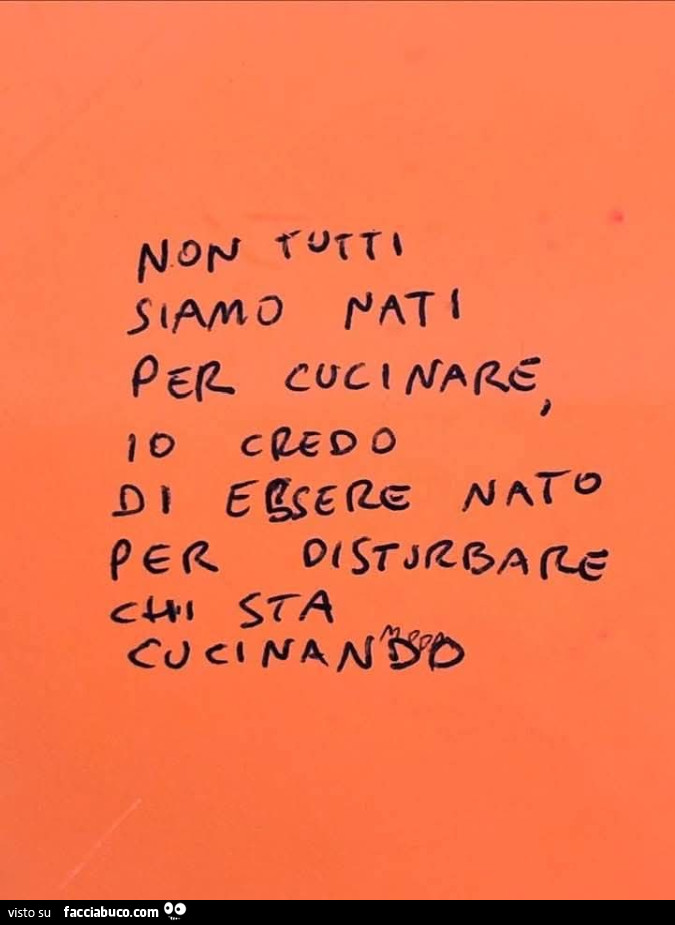 NON TUTTI
SIAMO NATI
PER CUCINARE,
IO CREDO
DI ESSERE NATO
PER DISTURBARE
CHI STA
CUCINANDO
visto su facciabuco.com